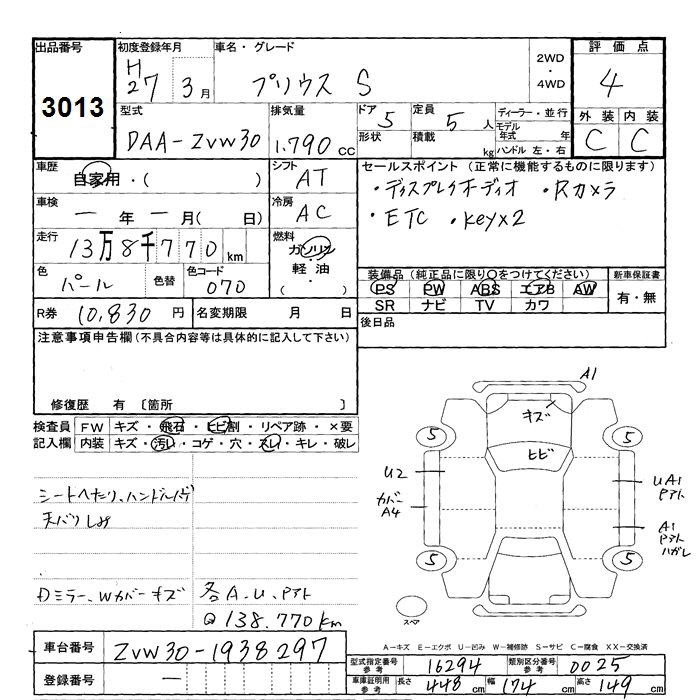 出品番号 3013
初度登録年月 H27 3月
車名・グレード プリウス S
2WD・4WD
評価点 4
型式 DAA-ZVW30
排気量 1.790 cc
ドア 5
形状
定員 5 人
積載 kg
ディーラー・並行
モデル年式 年
ハンドル 左・右
外装 C 内装 C
車歴 自家用・( )
シフト AT
車検 ー 年 ー 月( 日)
冷房 AC
走行 13万8千770km
燃料 ガソリン 軽油 ( ・ )
色 パール 色替 色コード 070
セールスポイント(正常に機能するものに限ります)
・ディスプレイオーディオ ・Rカメラ
・ETC ・keyx2
装備品(純正品に限り○をつけてください)
PS PW ABS エアB AW
SR ナビ TV カワ
新車保証書 有・無
R券 10,830 円 名変期限 月 日
後日品
注意事項申告欄(不具合内容等は具体的に記入して下さい)
修復歴 有 〔箇所 〕
検査員記入欄
FW キズ・飛石・ヒビ割・リペア跡・×要
内装 キズ・汚れ・コゲ・穴・スレ・キレ・破レ
シートヘたり、ハンドル
天バリしみ
Dミラー、Wカバーキズ
各A.U.Pアト
@138.770km
A1
キズ
ヒビ
5
5
5
5
U2
カバー
A4
UA1
Pアト
A1
Pアト
ハガレ
スペア
A-キズ E-エクボ U-凹み W-補修跡 S-サビ C-腐食 XX-交換済
車台番号 ZVW30-1938297
登録番号 ー
型式指定番号 参考 16294 類別区分番号 参考 0025
車庫証明用 参考 長さ 448 cm 幅 174 cm 高さ 149 cm